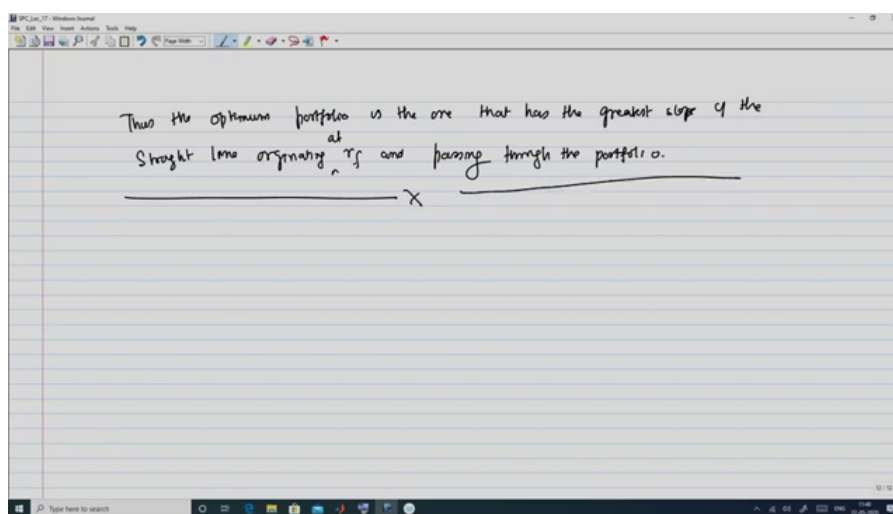 SPC_Lec_17 - Windows Journal
File Edit View Insert Actions Tools Help
Page Width
Thus the optimum portfolio is the one that has the greatest slope of the
at
Straight line orginating rf and passing through the portfolio.
X
12 / 12
Type here to search
ENG
11:40